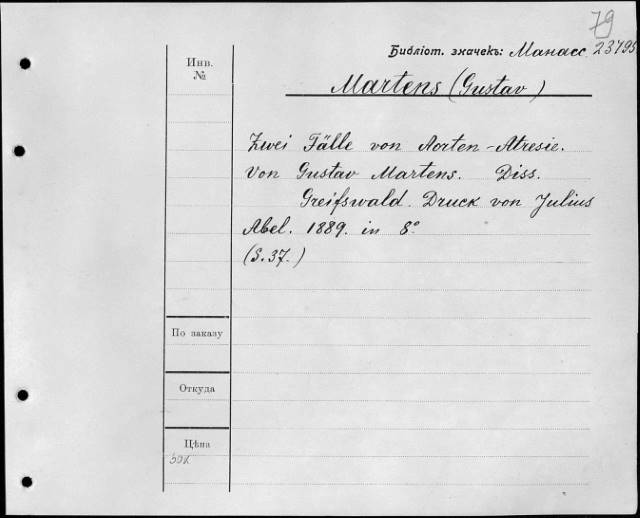 79
Библіот. значекъ: Манасс. 23795
Инв.
№
Martens (Gustav)
Zwei Fälle von Aorten-Atresie.
Von Gustav Martens. Diss.
Greifswald. Druck von Julius
Abel. 1889. in 8°
(S. 37.)
По заказу
Откуда
Цѣна